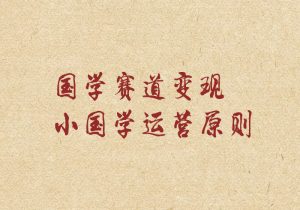 国学赛道变现
小国学运营原则